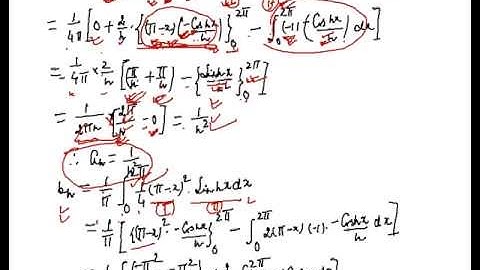 = 1/4π [0 + 2/n · {(π-x)(-Cosnx/n)}₀^2π - ∫₀^2π (-1)(-Cosnx/n) dx]
= 1/4π × 2/n [(π/n + π/n) - {Sinnx/n²}₀^2π]
= 1/2πn [2π/n - 0] = 1/n²
∴ aₙ = 1/n²
bₙ = 1/π ∫₀^2π 1/4 (π-x)² · Sinnx dx
= 1/π [{(π-x)² · -Cosnx/n}₀^2π - ∫₀^2π 2(π-x)(-1) · -Cosnx/n dx]